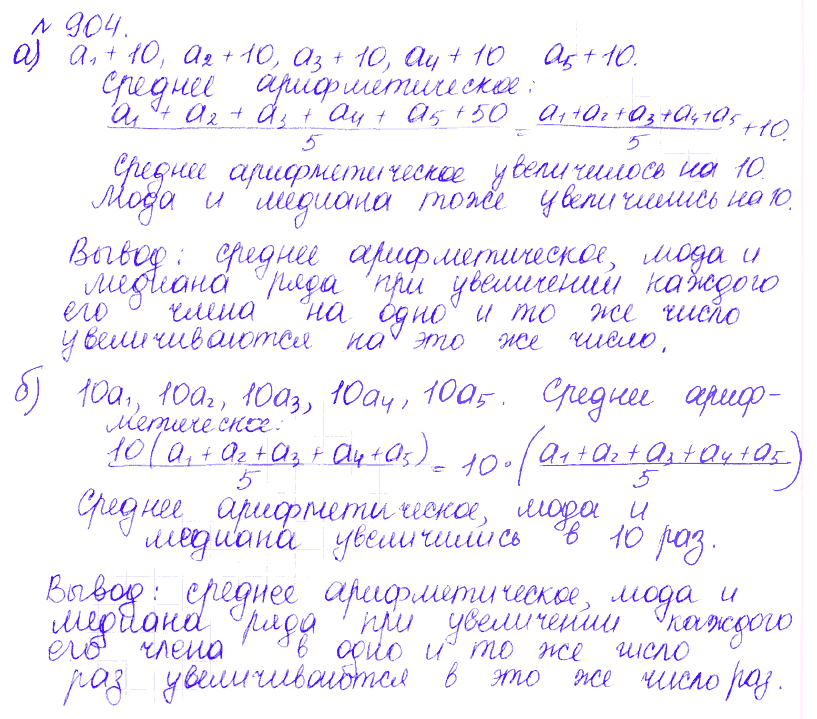 № 904.
а) a₁ + 10, a₂ + 10, a₃ + 10, a₄ + 10 a₅ + 10.
Среднее арифметическое:
(a₁ + a₂ + a₃ + a₄ + a₅ + 50)/5 = (a₁ + a₂ + a₃ + a₄ + a₅)/5 + 10.
Среднее арифметическое увеличилось на 10.
Мода и медиана тоже увеличились на 10.
Вывод: среднее арифметическое, мода и
медиана ряда при увеличении каждого
его члена на одно и то же число
увеличиваются на это же число.
б) 10a₁, 10a₂, 10a₃, 10a₄, 10a₅. Среднее ариф-
метическое:
10(a₁ + a₂ + a₃ + a₄ + a₅)/5 = 10 · ((a₁ + a₂ + a₃ + a₄ + a₅)/5)
Среднее арифметическое, мода и
медиана увеличились в 10 раз.
Вывод: среднее арифметическое, мода и
медиана ряда при увеличении каждого
его члена в одно и то же число
раз увеличиваются в это же число раз.